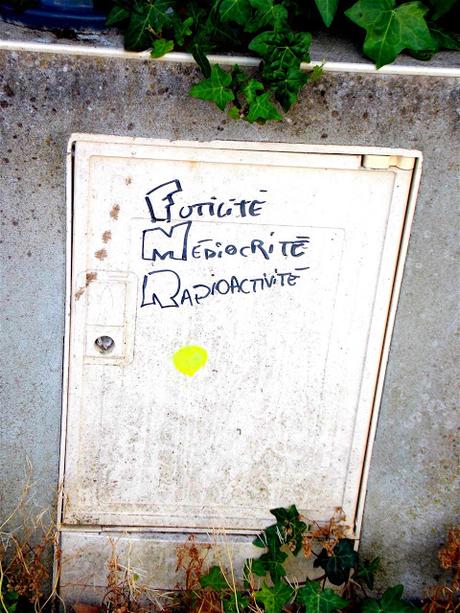 FUTILITÉ
MÉDIOCRITÉ
RADIOACTIVITÉ